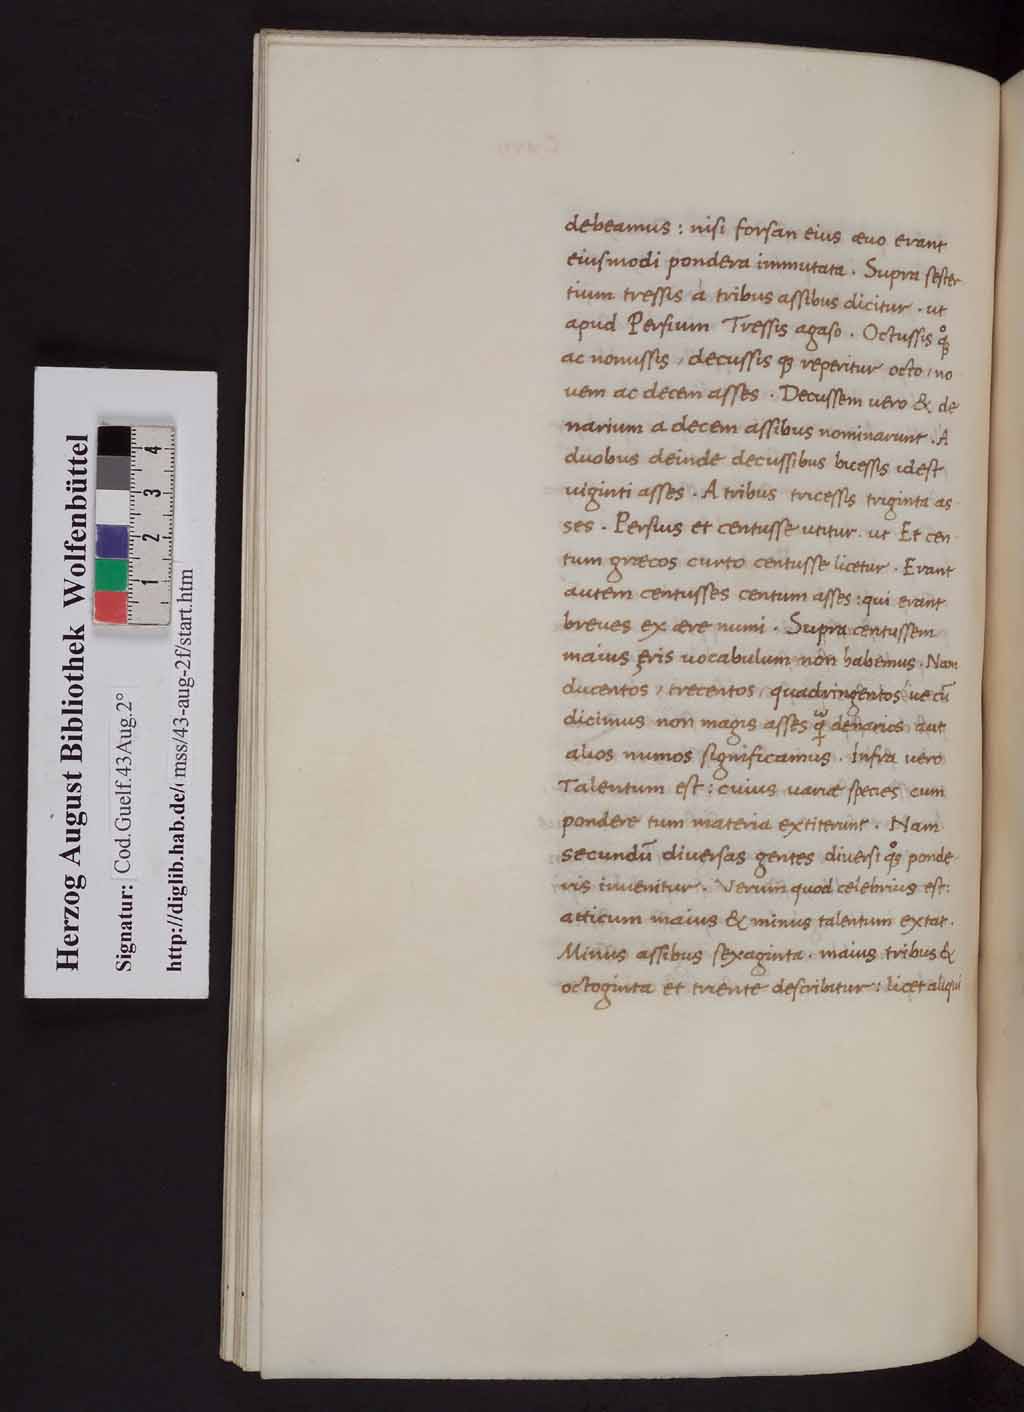 debeamus : nisi forsan eius æuo erant
eiusmodi pondera immutata . Supra sester
tium tressis a tribus assibus dicitur . ut
apud Persium Tressis agaso . Octussis qͦꝫ
ac nonussis / decussis qꝫ reperitur octo / no
uem ac decem asses . Decussem uero & de
narium a decem assibus nominarunt . A
duobus deinde decussibus bicessis idest
uiginti asses . A tribus tricessis triginta as
ses . Persius et centusse utitur . ut Et cen
tum græcos curto centusse licetur . Erant
autem centusses centum asses : qui erant
breues ex ære numi . Supra centussem
maius ęris uocabulum non habemus . Nam
ducentos / trecentos / quadringentos ue cū
dicimus non magis asses denarios aut
alios numos significamus . Infra uero
Talentum est : cuius uariæ species cum
pondere tum materia extiterunt . Nam
secundū diuersas gentes diuersi qͦꝫ ponde
ris inuenitur . Verum quod celebrius est :
atticum maius & minus talentum extat .
Minus assibus sexaginta . maius tribus &
octoginta et triente describitur : licet aliqui
Herzog August Bibliothek Wolfenbüttel
Signatur: Cod.Guelf.43Aug.2°
http://diglib.hab.de/ mss/43-aug-2f/start.htm
1 2 3 4